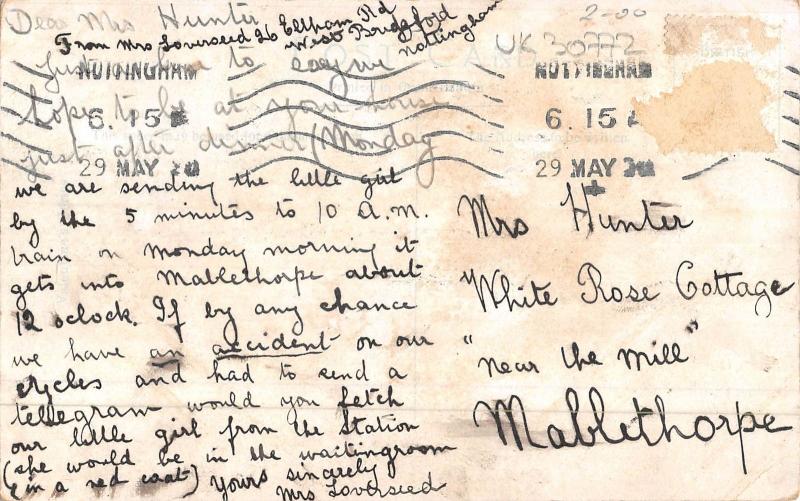 Dear Mrs Hunter
From Mrs Loverseed 26 Eltham Rd
West Bridgford
Nottingham
2-00
UK 30772
POST CARD
just to
hope to be at your house
just after dinner (Monday
NOTTINGHAM
6. 15
29 MAY
NOTTINGHAM
6. 15
29 MAY
we are sending the little girl
by the 5 minutes to 10 a.m.
train on Monday morning it
gets into Mablethorpe about
12 oclock. If by any chance
we have an accident on our
cycles and had to send a
tellegram would you fetch
our little girl from the Station
(she would be in the waitingroom
in a red coat) Yours sincerely
Mrs Loverseed
Mrs Hunter
White Rose Cottage
"near the mill"
Mablethorpe